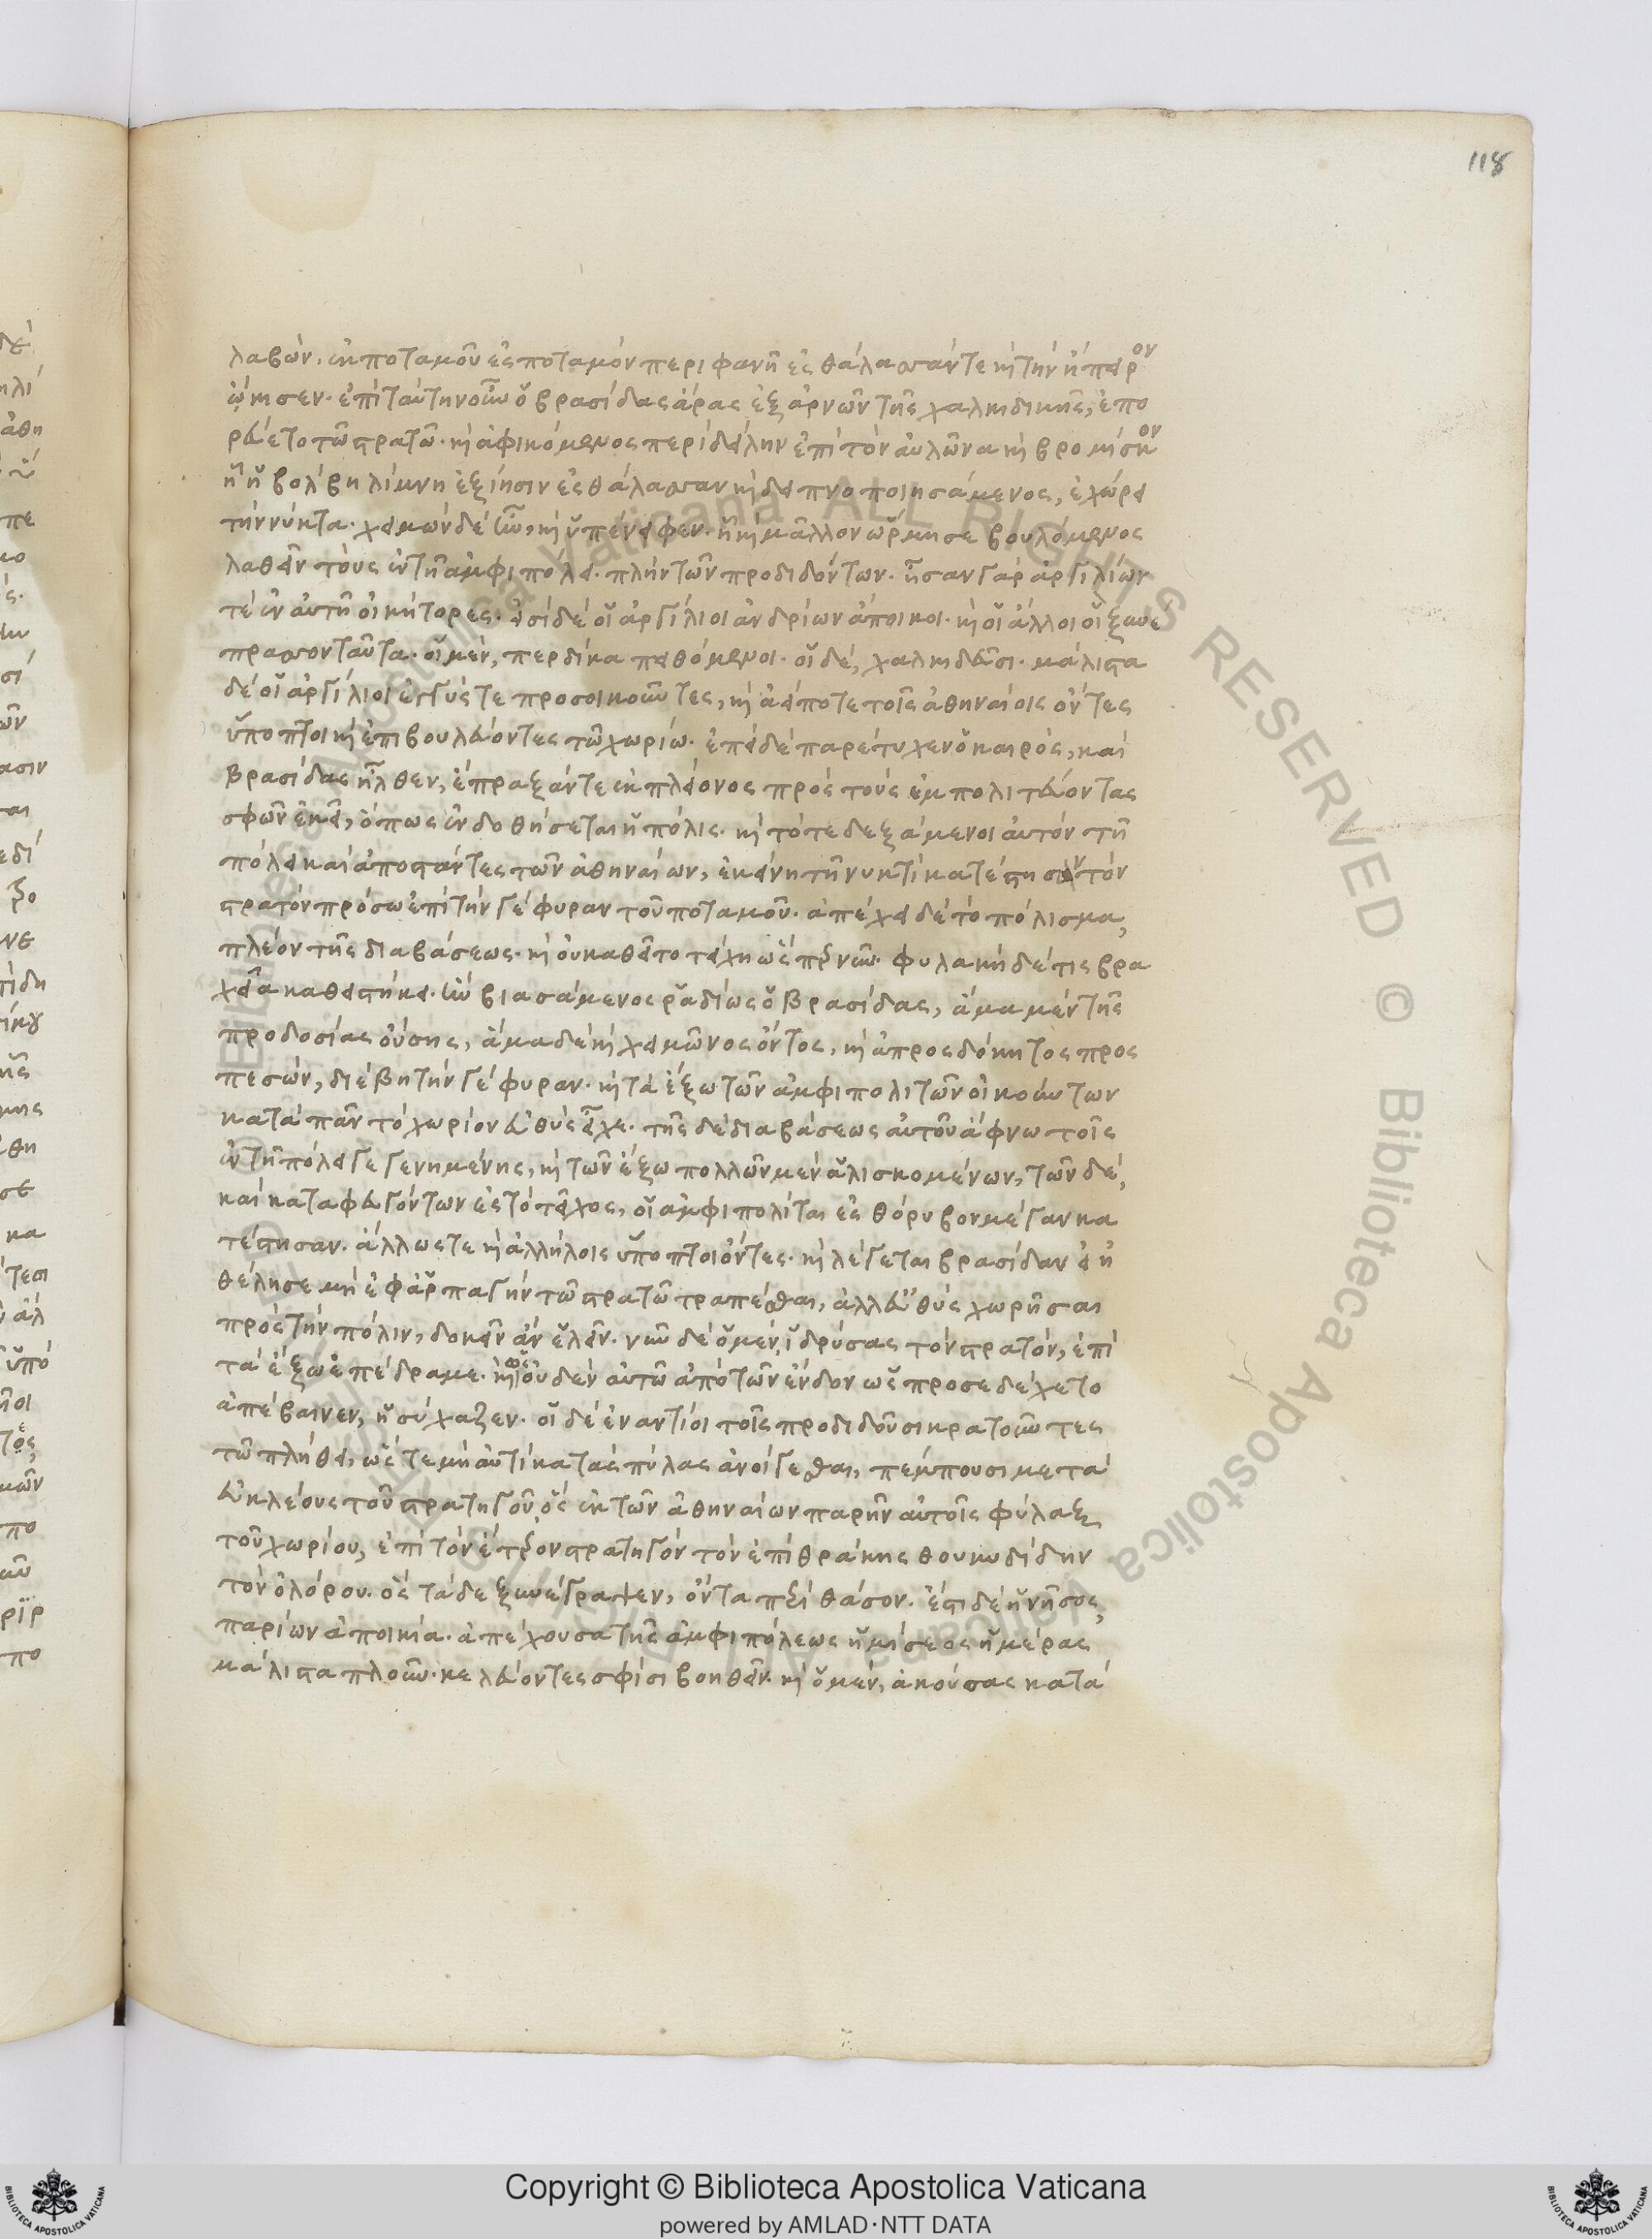 118
λαβὼν. ἐκ ποταμοῦ ἐς ποταμὸν περιφανῆ ἐς θάλασσάν τε καὶ τὴν ἤπειρον
ᾤκισεν. ἐπὶ ταύτην οὖν ὁ βρασίδας ἄρας ἐξ ἀρνῶν τῆς χαλκιδικῆς, ἐπο
ρεύετο τῷ στρατῷ. καὶ ἀφικόμενος περὶ δείλην ἐπὶ τὸν αὐλῶνα καὶ βρομίσκον
ᾗ ἡ βόλβη λίμνη ἐξίησιν ἐς θάλασσαν καὶ δειπνοποιησάμενος, ἐχώρει
τὴν νύκτα. χειμὼν δὲ ἦν, καὶ ὑπένειφεν. ᾗ καὶ μᾶλλον ὥρμησε βουλόμενος
λαθεῖν τοὺς ἐν τῇ ἀμφιπόλει. πλὴν τῶν προδιδόντων. ἦσαν γὰρ ἀργιλίων
τε ἐν αὐτῇ οἰκήτορες. εἰσὶ δὲ οἱ ἀργίλιοι ἀνδρίων ἄποικοι. καὶ οἱ ἄλλοι οἳ ξυνέ
πρασσον ταῦτα. οἱ μὲν, περδίκκα πειθόμενοι. οἱ δὲ, χαλκιδεῦσι. μάλιστα
δὲ οἱ ἀργίλιοι ἐγγύς τε προσοικοῦντες, καὶ ἀεί ποτε τοῖς ἀθηναίοις ὄντες
ὕποπτοι καὶ ἐπιβουλεύοντες τῷ χωρίῳ. ἐπειδὲ παρέτυχεν ὁ καιρὸς, καὶ
βρασίδας ἦλθεν, ἔπραξάν τε ἐκ πλείονος πρὸς τοὺς ἐμπολιτεύοντας
σφῶν ἐκεῖ, ὅπως ἐνδοθήσεται ἡ πόλις. καὶ τότε δεξάμενοι αὐτὸν τῇ
πόλει καὶ ἀποστάντες τῶν ἀθηναίων, ἐκείνῃ τῇ νυκτὶ κατέστησαν τὸν
στρατὸν πρόσω ἐπὶ τὴν γέφυραν τοῦ ποταμοῦ. ἀπέχει δὲ τὸ πόλισμα,
πλέον τῆς διαβάσεως. καὶ οὐ καθεῖτο τείχη ὥσπερ νῦν. φυλακὴ δέ τις βρα
χεῖα καθειστήκει. ἣν βιασάμενος ῥαδίως ὁ βρασίδας, ἅμα μὲν τῆς
προδοσίας οὔσης, ἅμα δὲ καὶ χειμῶνος ὄντος, καὶ ἀπροσδόκητος προς
πεσὼν, διέβη τὴν γέφυραν. καὶ τὰ ἔξω τῶν ἀμφιπολιτῶν οἰκούντων
κατὰ πᾶν τὸ χωρίον εὐθὺς εἶχε. τῆς δὲ διαβάσεως αὐτοῦ ἄφνω τοῖς
ἐν τῇ πόλει γεγενημένης, καὶ τῶν ἔξω πολλῶν μὲν ἁλισκομένων, τῶν δὲ,
καὶ καταφευγόντων ἐς τὸ τεῖχος, οἱ ἀμφιπολῖται ἐς θόρυβον μέγαν κα
τέστησαν. ἄλλως τε καὶ ἀλλήλοις ὕποπτοι ὄντες. καὶ λέγεται βρασίδαν εἰ ἠ
θέλησε μὴ ἐφ' ἁρπαγὴν τῷ στρατῷ τραπέσθαι, ἀλλ' εὐθὺς χωρῆσαι
πρὸς τὴν πόλιν, δοκεῖν ἂν ἑλεῖν. νῦν δὲ ὁ μὲν, ἱδρύσας τὸν στρατὸν, ἐπὶ
τὰ ἔξω ἐπέδραμε. καὶ ὡς οὐδὲν αὐτῷ ἀπὸ τῶν ἔνδον ὡς προσεδέχετο
ἀπέβαινεν, ἡσύχαζεν. οἱ δὲ ἐναντίοι τοῖς προδιδοῦσι κρατοῦντες
τῷ πλήθει, ὥστε μὴ αὐτίκα τὰς πύλας ἀνοίγεσθαι, πέμπουσι μετὰ
εὐκλέους τοῦ στρατηγοῦ, ὃς ἐκ τῶν ἀθηναίων παρῆν αὐτοῖς φύλαξ
τοῦ χωρίου, ἐπὶ τὸν ἕτερον στρατηγὸν τὸν ἐπὶ θράκης θουκυδίδην
τὸν ὀλόρου. ὃς τάδε ξυνέγραψεν, ὄντα περὶ θάσον. ἔστι δὲ ἡ νῆσος,
παρίων ἀποικία. ἀπέχουσα τῆς ἀμφιπόλεως ἡμίσεος ἡμέρας
μάλιστα πλοῦν. κελεύοντες σφίσι βοηθεῖν. καὶ ὁ μὲν, ἀκούσας κατὰ
Copyright © Biblioteca Apostolica Vaticana
powered by AMLAD·NTT DATA